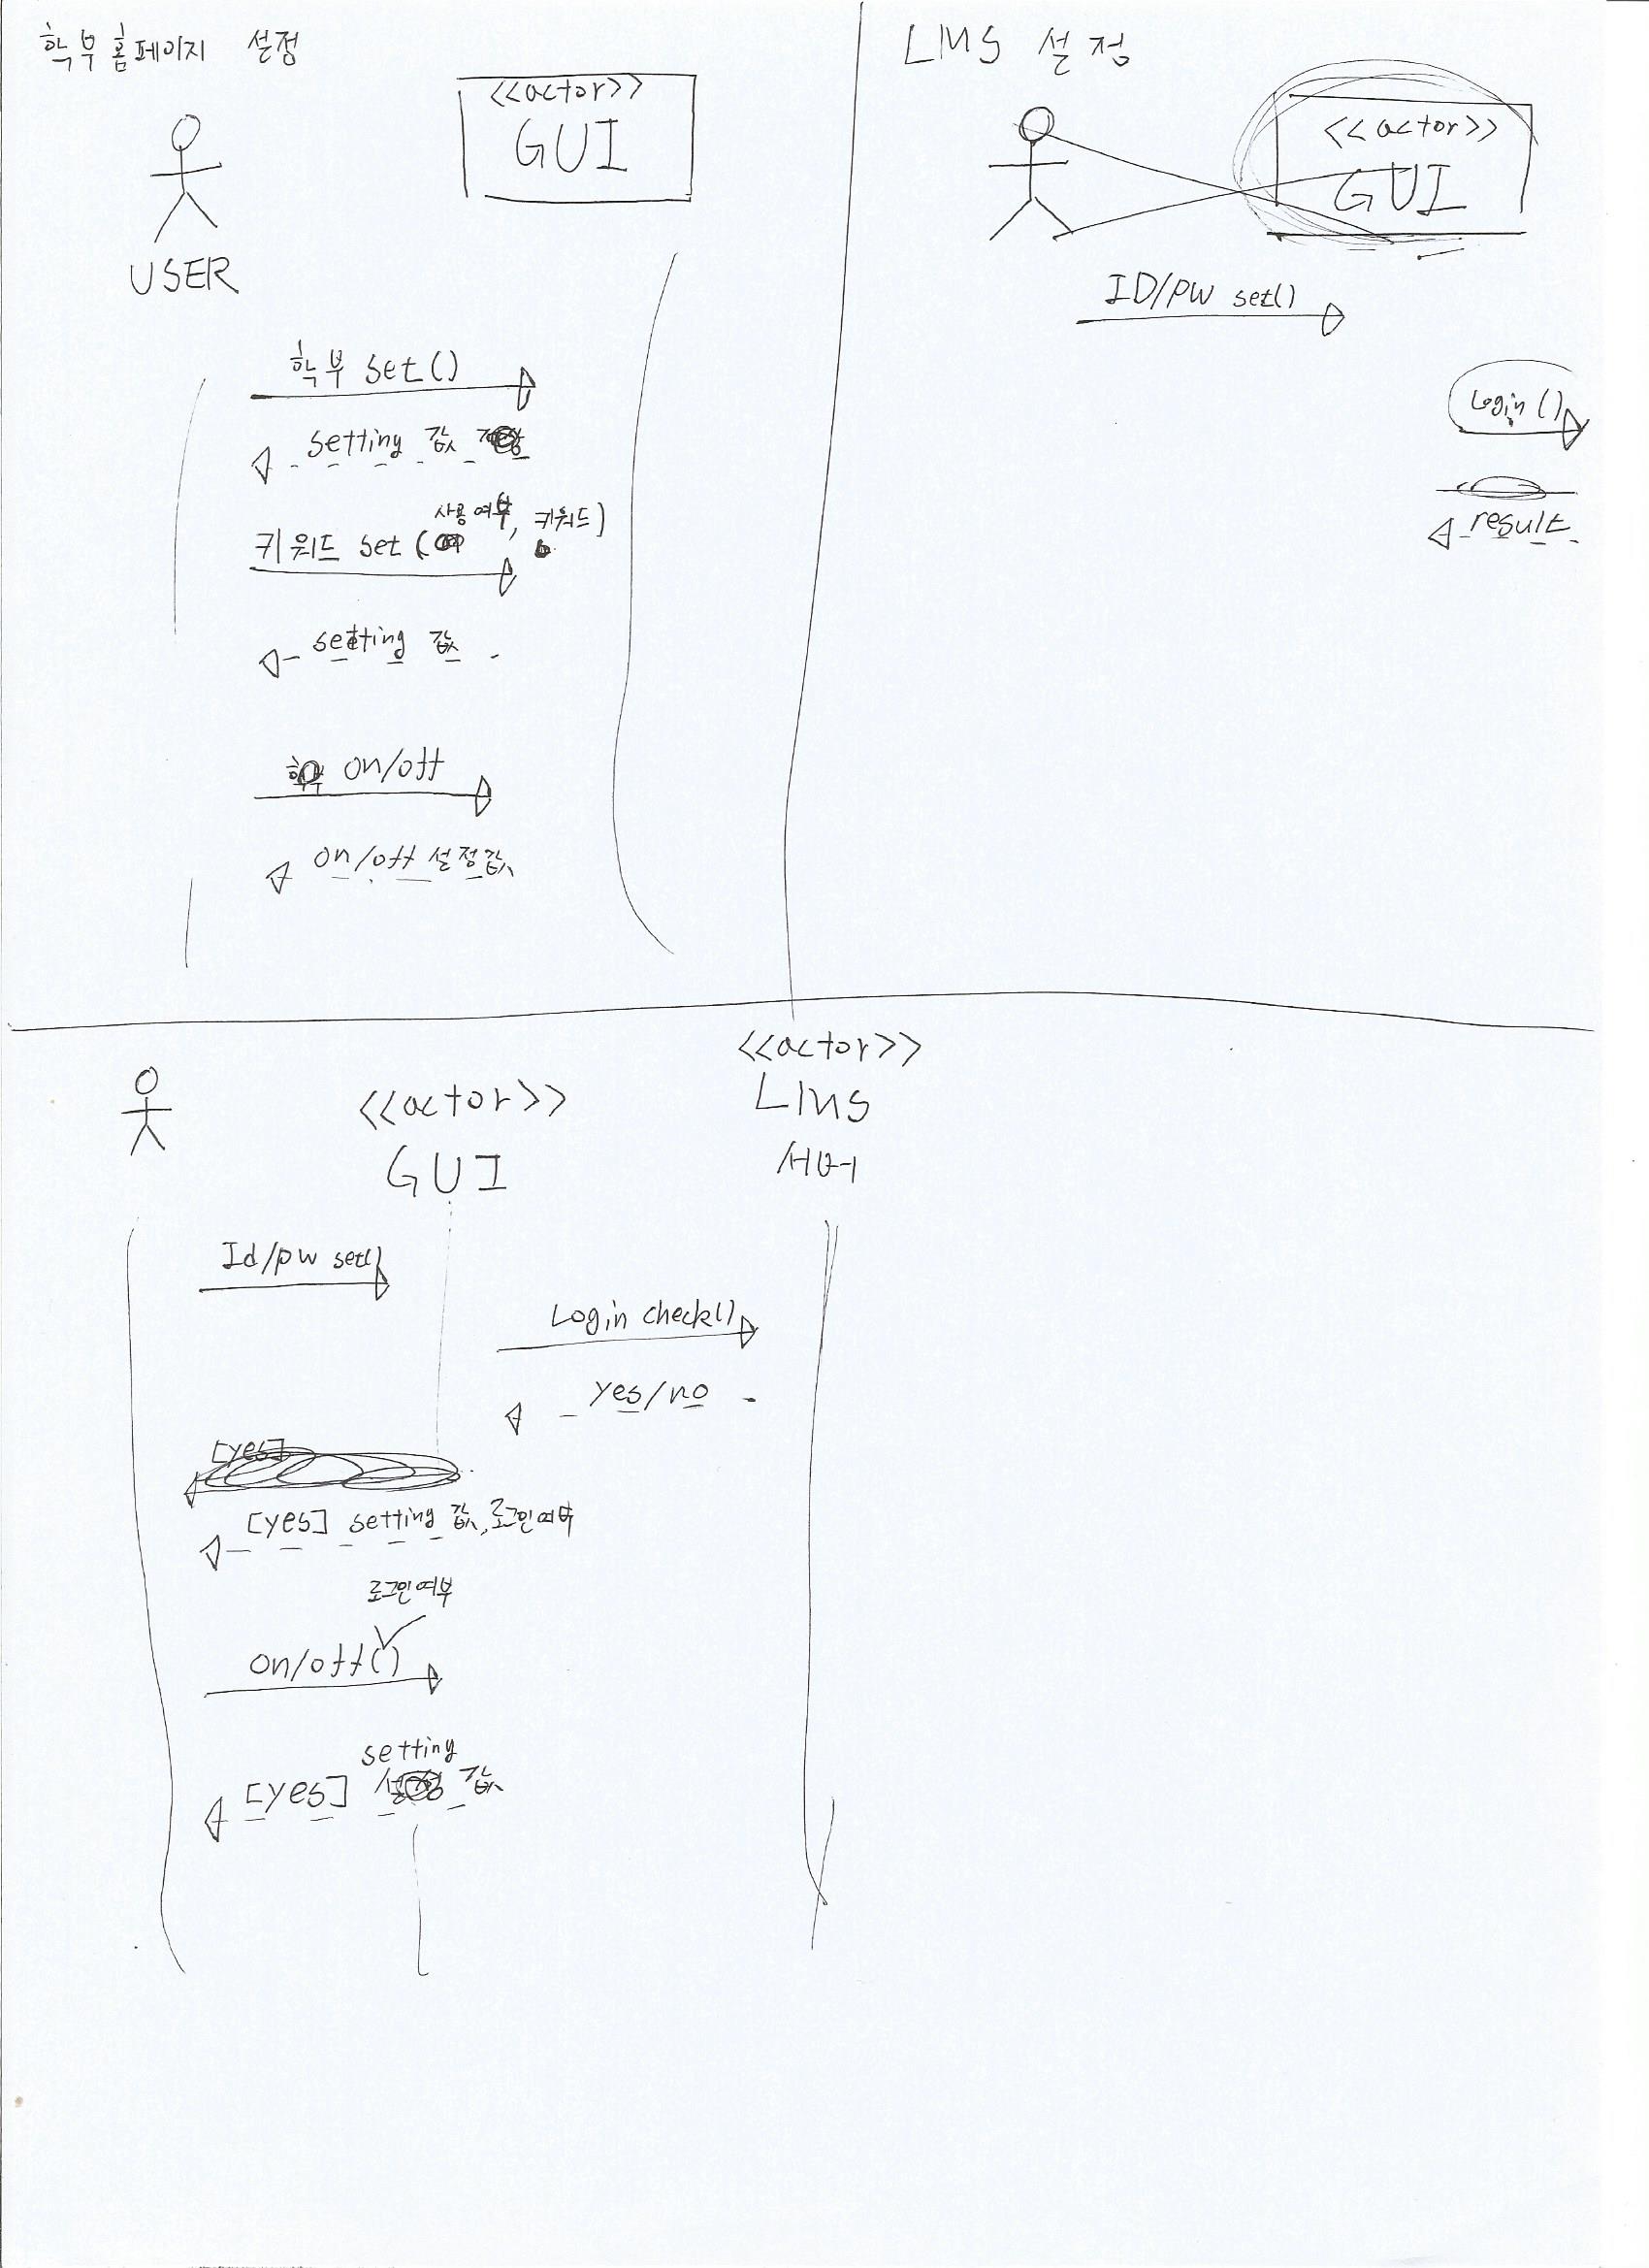 학부홈페이지 설정
<<actor>>
GUI
USER
학부 set()
setting 값
사용여부, 키워드)
키워드 set(
setting 값
on/off
on/off 설정값
LMS 설정
<<actor>>
GUI
ID/PW set()
Login()
result
<<actor>>
GUI
<<actor>>
LMS
서버
Id/pw set()
Login check()
yes/no
[yes]
[yes] setting 값, 로그인여부
로그인여부
on/off()
setting
[yes] 값